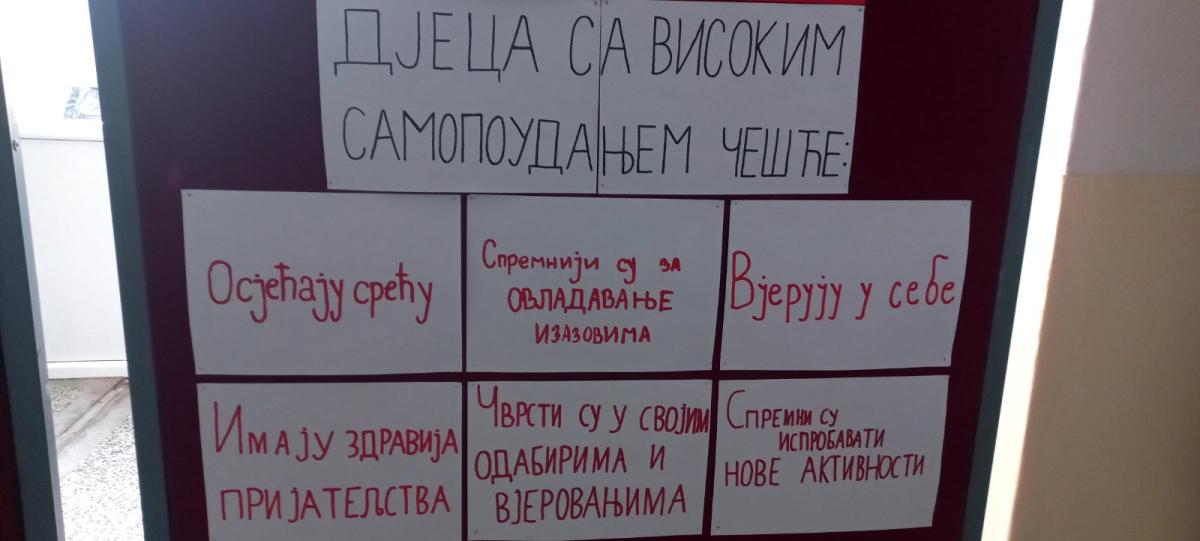 ДЈЕЦА СА ВИСОКИМ
САМОПОУДАЊЕМ ЧЕШЋЕ:
Осјећају срећу
Спремнији су за
ОВЛАДАВАЊЕ
ИЗАЗОВИМА
Вјерују у себе
Имају здравија
пријатељства
Чврсти су у својим
одабирима и
вјеровањима
Спремни су
испробавати
нове активности